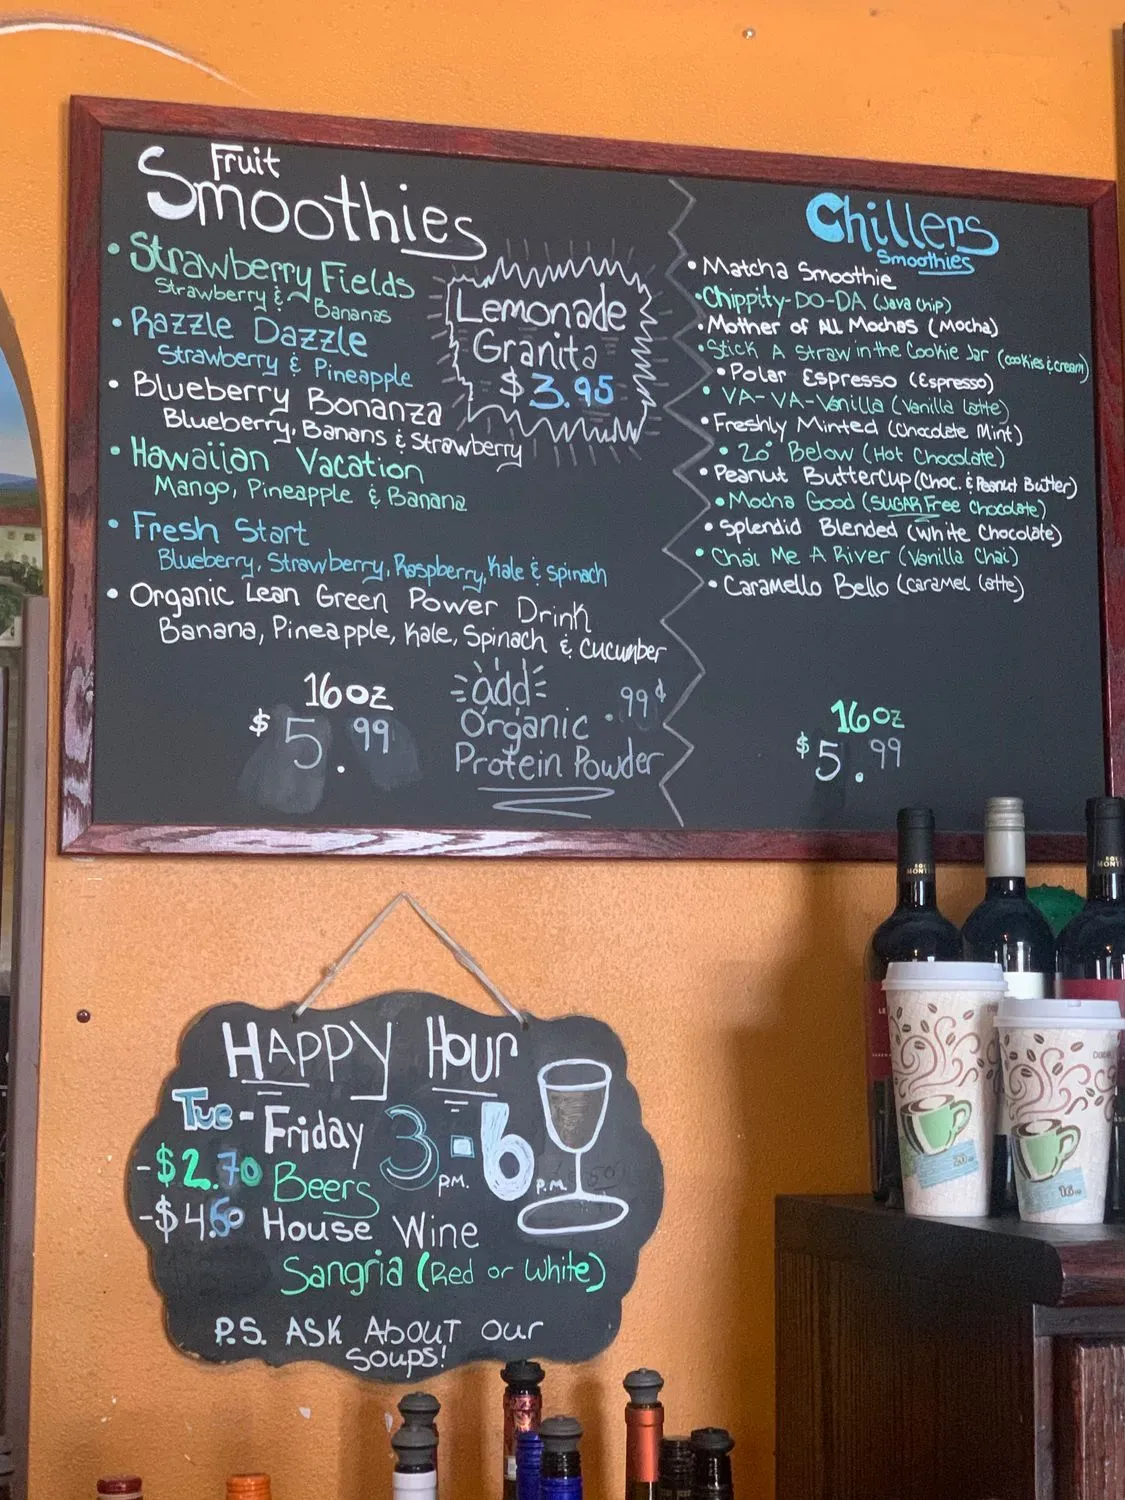 Fruit
Smoothies
• Strawberry Fields
Strawberry & Bananas
• Razzle Dazzle
Strawberry & Pineapple
• Blueberry Bonanza
Blueberry, Banans & Strawberry
• Hawaiian Vacation
Mango, Pineapple & Banana
• Fresh Start
Blueberry, Strawberry, Raspberry, Kale & Spinach
• Organic Lean Green Power Drink
Banana, Pineapple, Kale, Spinach & Cucumber
16oz
$5.99
Lemonade
Granita
$3.95
add
Organic .99¢
Protein Powder
Chillers
Smoothies
• Matcha Smoothie
• Chippity-DO-DA (Java Chip)
• Mother of ALL Mochas (Mocha)
• Stick A Straw in the Cookie Jar (cookies & cream)
• Polar Espresso (Espresso)
• VA-VA-Vanilla (Vanilla Latte)
• Freshly Minted (Chocolate Mint)
• 20° Below (Hot Chocolate)
• Peanut ButterCup (Choc. & Peanut Butter)
• Mocha Good (SUGAR Free Chocolate)
• Splendid Blended (White Chocolate)
• Chai Me A River (Vanilla Chai)
• Caramello Bello (Caramel Latte)
16oz
$5.99
HAPPY Hour
Tue-Friday 3 P.M. - 6 P.M.
-$2.70 Beers
-$4.50 House Wine
Sangria (Red or White)
P.S. ASK ABOUT our
SOUPS!
20
16